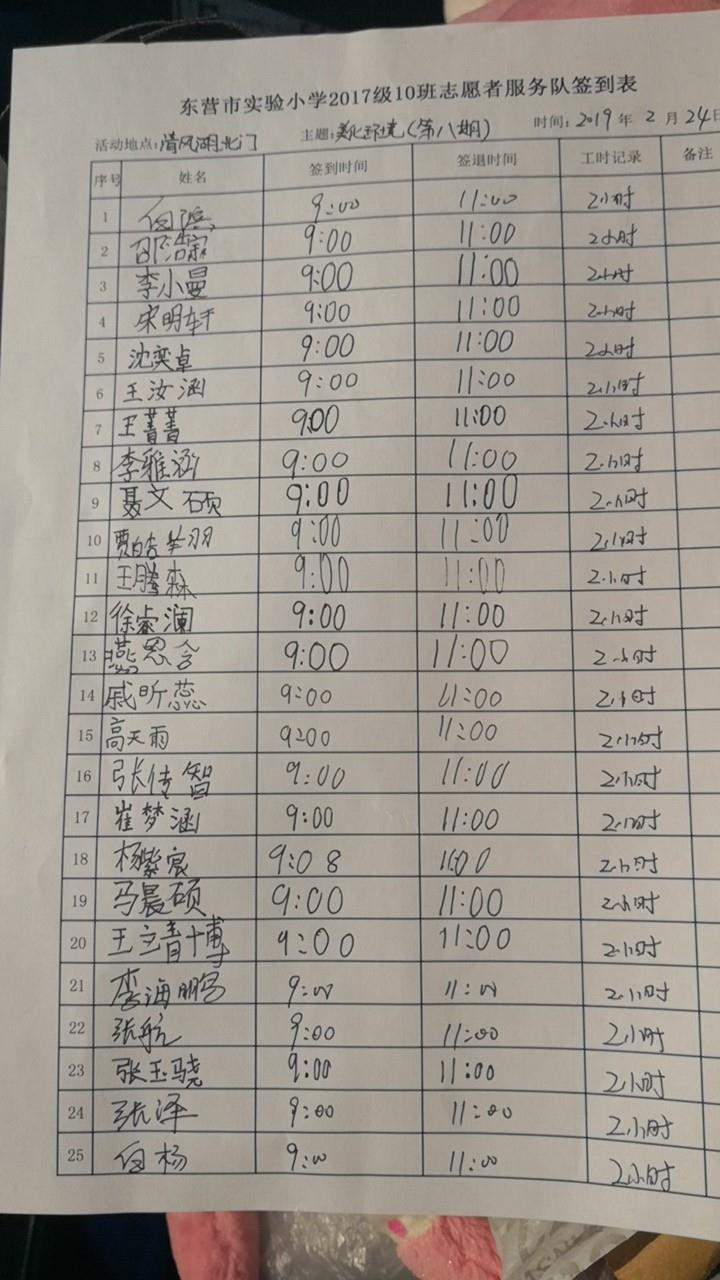 东营市实验小学2017级10班志愿者服务队签到表
活动地点:清风湖北门 主题:美化环境(第八期) 时间:2019年2月24日
序号 姓名 签到时间 签退时间 工时记录 备注
1 9:00 11:00 2小时
2 邵浩宸 9:00 11:00 2小时
3 李小曼 9:00 11:00 2小时
4 宋明轩 9:00 11:00 2小时
5 沈奕卓 9:00 11:00 2小时
6 王汝涵 9:00 11:00 2小时
7 王菁菁 9:00 11:00 2小时
8 李雅涵 9:00 11:00 2小时
9 聂文硕 9:00 11:00 2小时
10 9:00 11:00 2小时
11 王腾森 9:00 11:00 2小时
12 徐睿澜 9:00 11:00 2小时
13 燕思含 9:00 11:00 2小时
14 戚昕蕊 9:00 11:00 2小时
15 高天雨 9:00 11:00 2小时
16 张传智 9:00 11:00 2小时
17 崔梦涵 9:00 11:00 2小时
18 杨紫宸 9:08 11:00 2小时
19 马晨硕 9:00 11:00 2小时
20 王立青博 9:00 11:00 2小时
21 李海鹏 9:00 11:00 2小时
22 张航 9:00 11:00 2小时
23 张玉骁 9:00 11:00 2小时
24 张泽 9:00 11:00 2小时
25 白杨 9:00 11:00 2小时